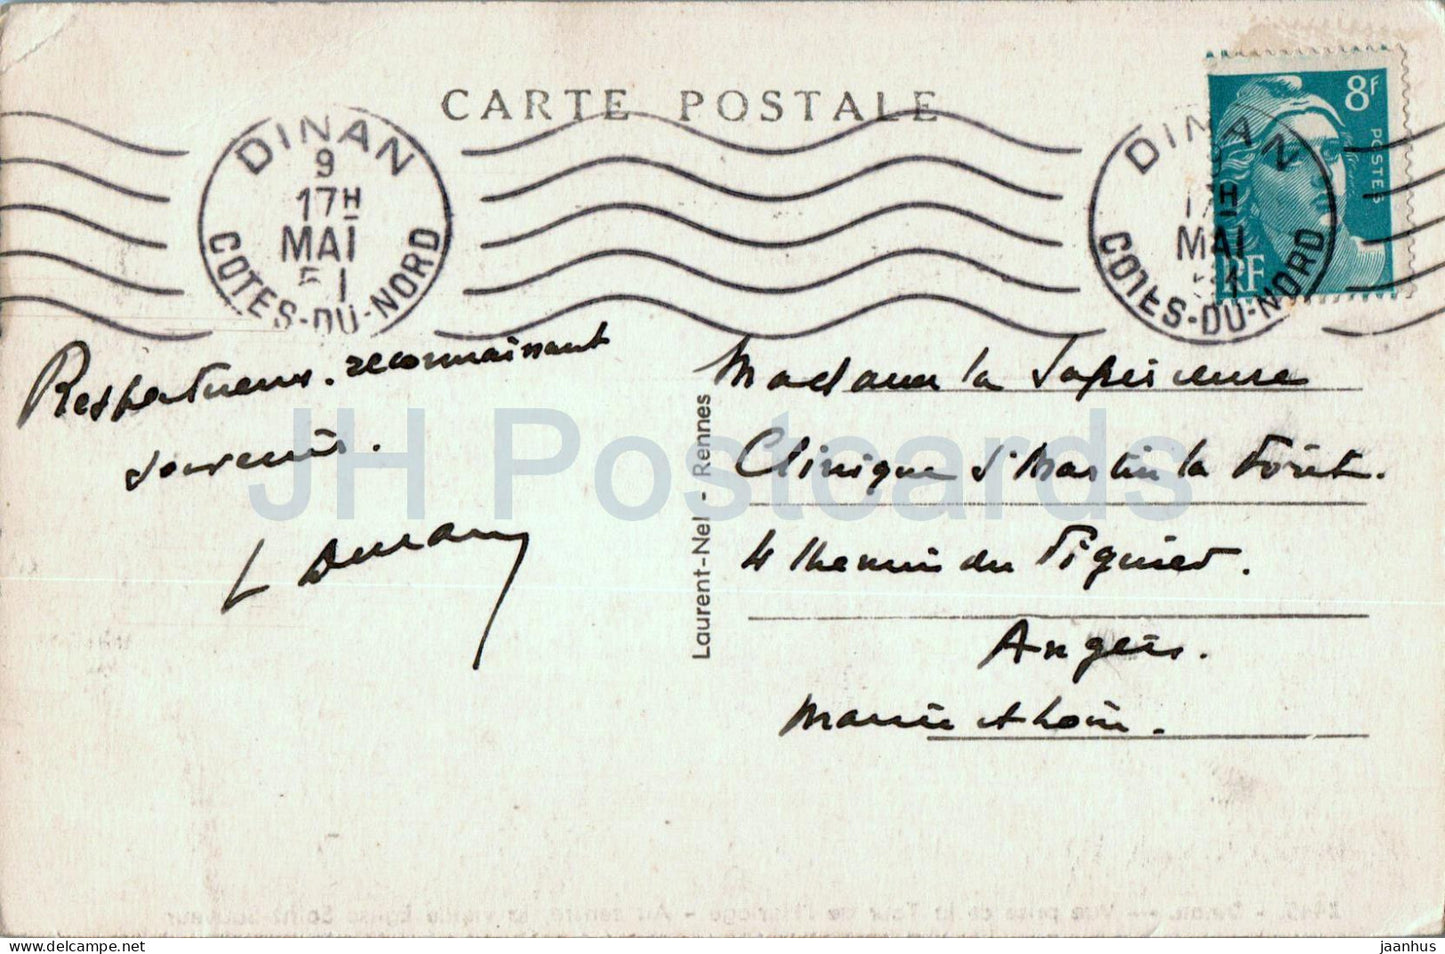 CARTE POSTALE
DINAN
9
17H
MAI
51
COTES-DU-NORD
DINAN
17H
MAI
51
COTES-DU-NORD
8F
POSTES
RF
Respectueux. reconnaissant
souvenir.
L
Madame la Supérieure
Clinique St Martin la Forêt.
4 Chemin du Piguier.
Angers.
Maine et Loire.
Laurent-Nel - Rennes
JH Postcards
2445. - Dinan. - Vue prise de la Tour de l'Horloge - Au centre, la vieille Eglise Saint-Sauveur
delcampe.net
jaanhus